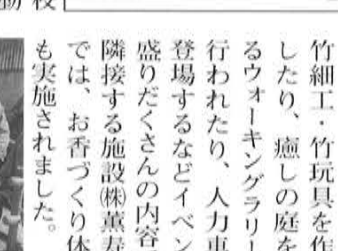 竹細工・竹玩具を作
したり、癒しの庭を
るウォーキングラリー
行われたり、人力車
登場するなどイベン
盛りだくさんの内容
隣接する施設㈱薫寿
では、お香づくり体
も実施されました。